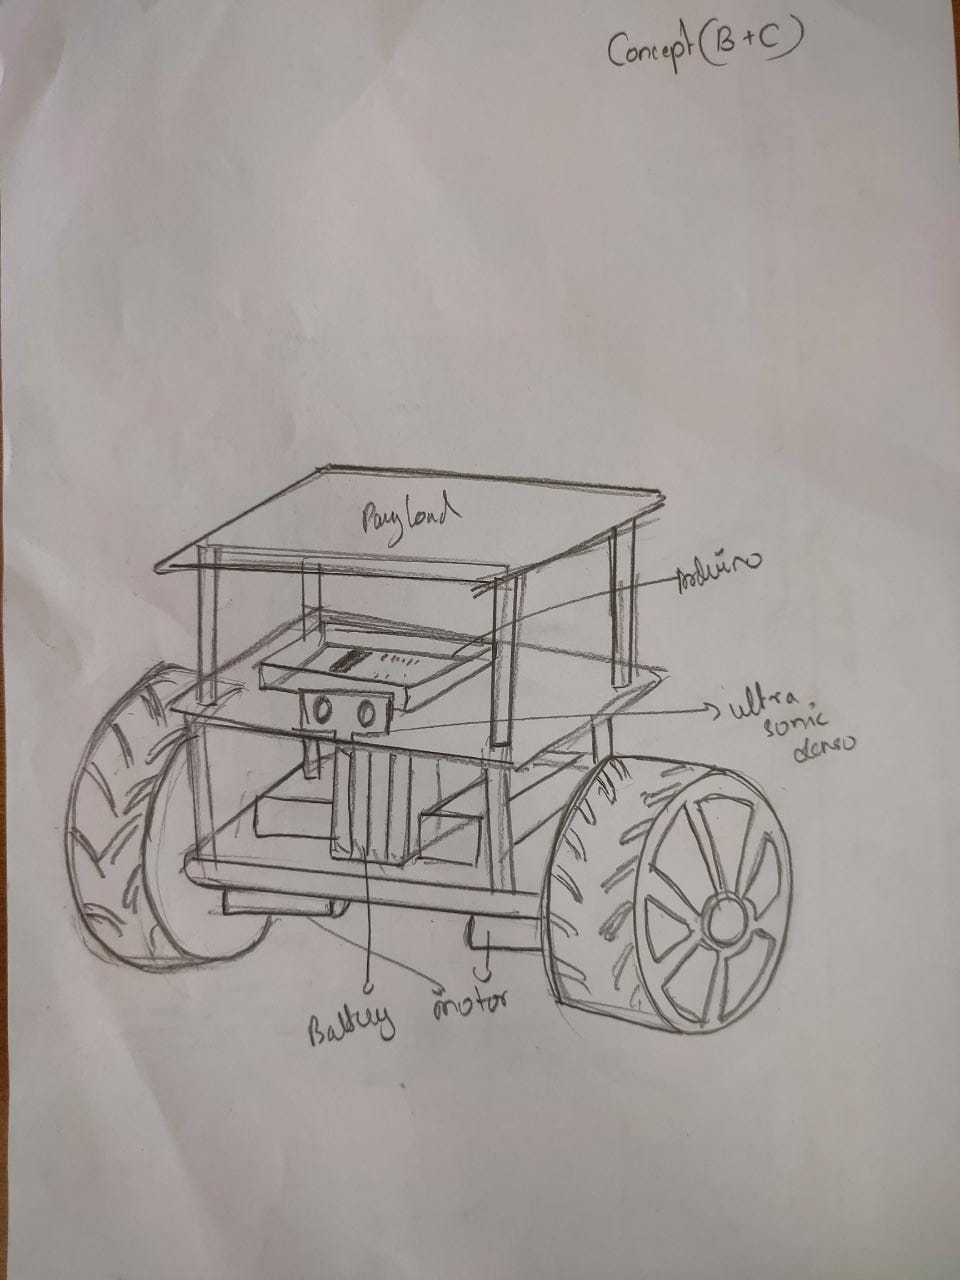 Concept (B+C)
Payload
Arduino
ultra
sonic
senso
Battery
motor